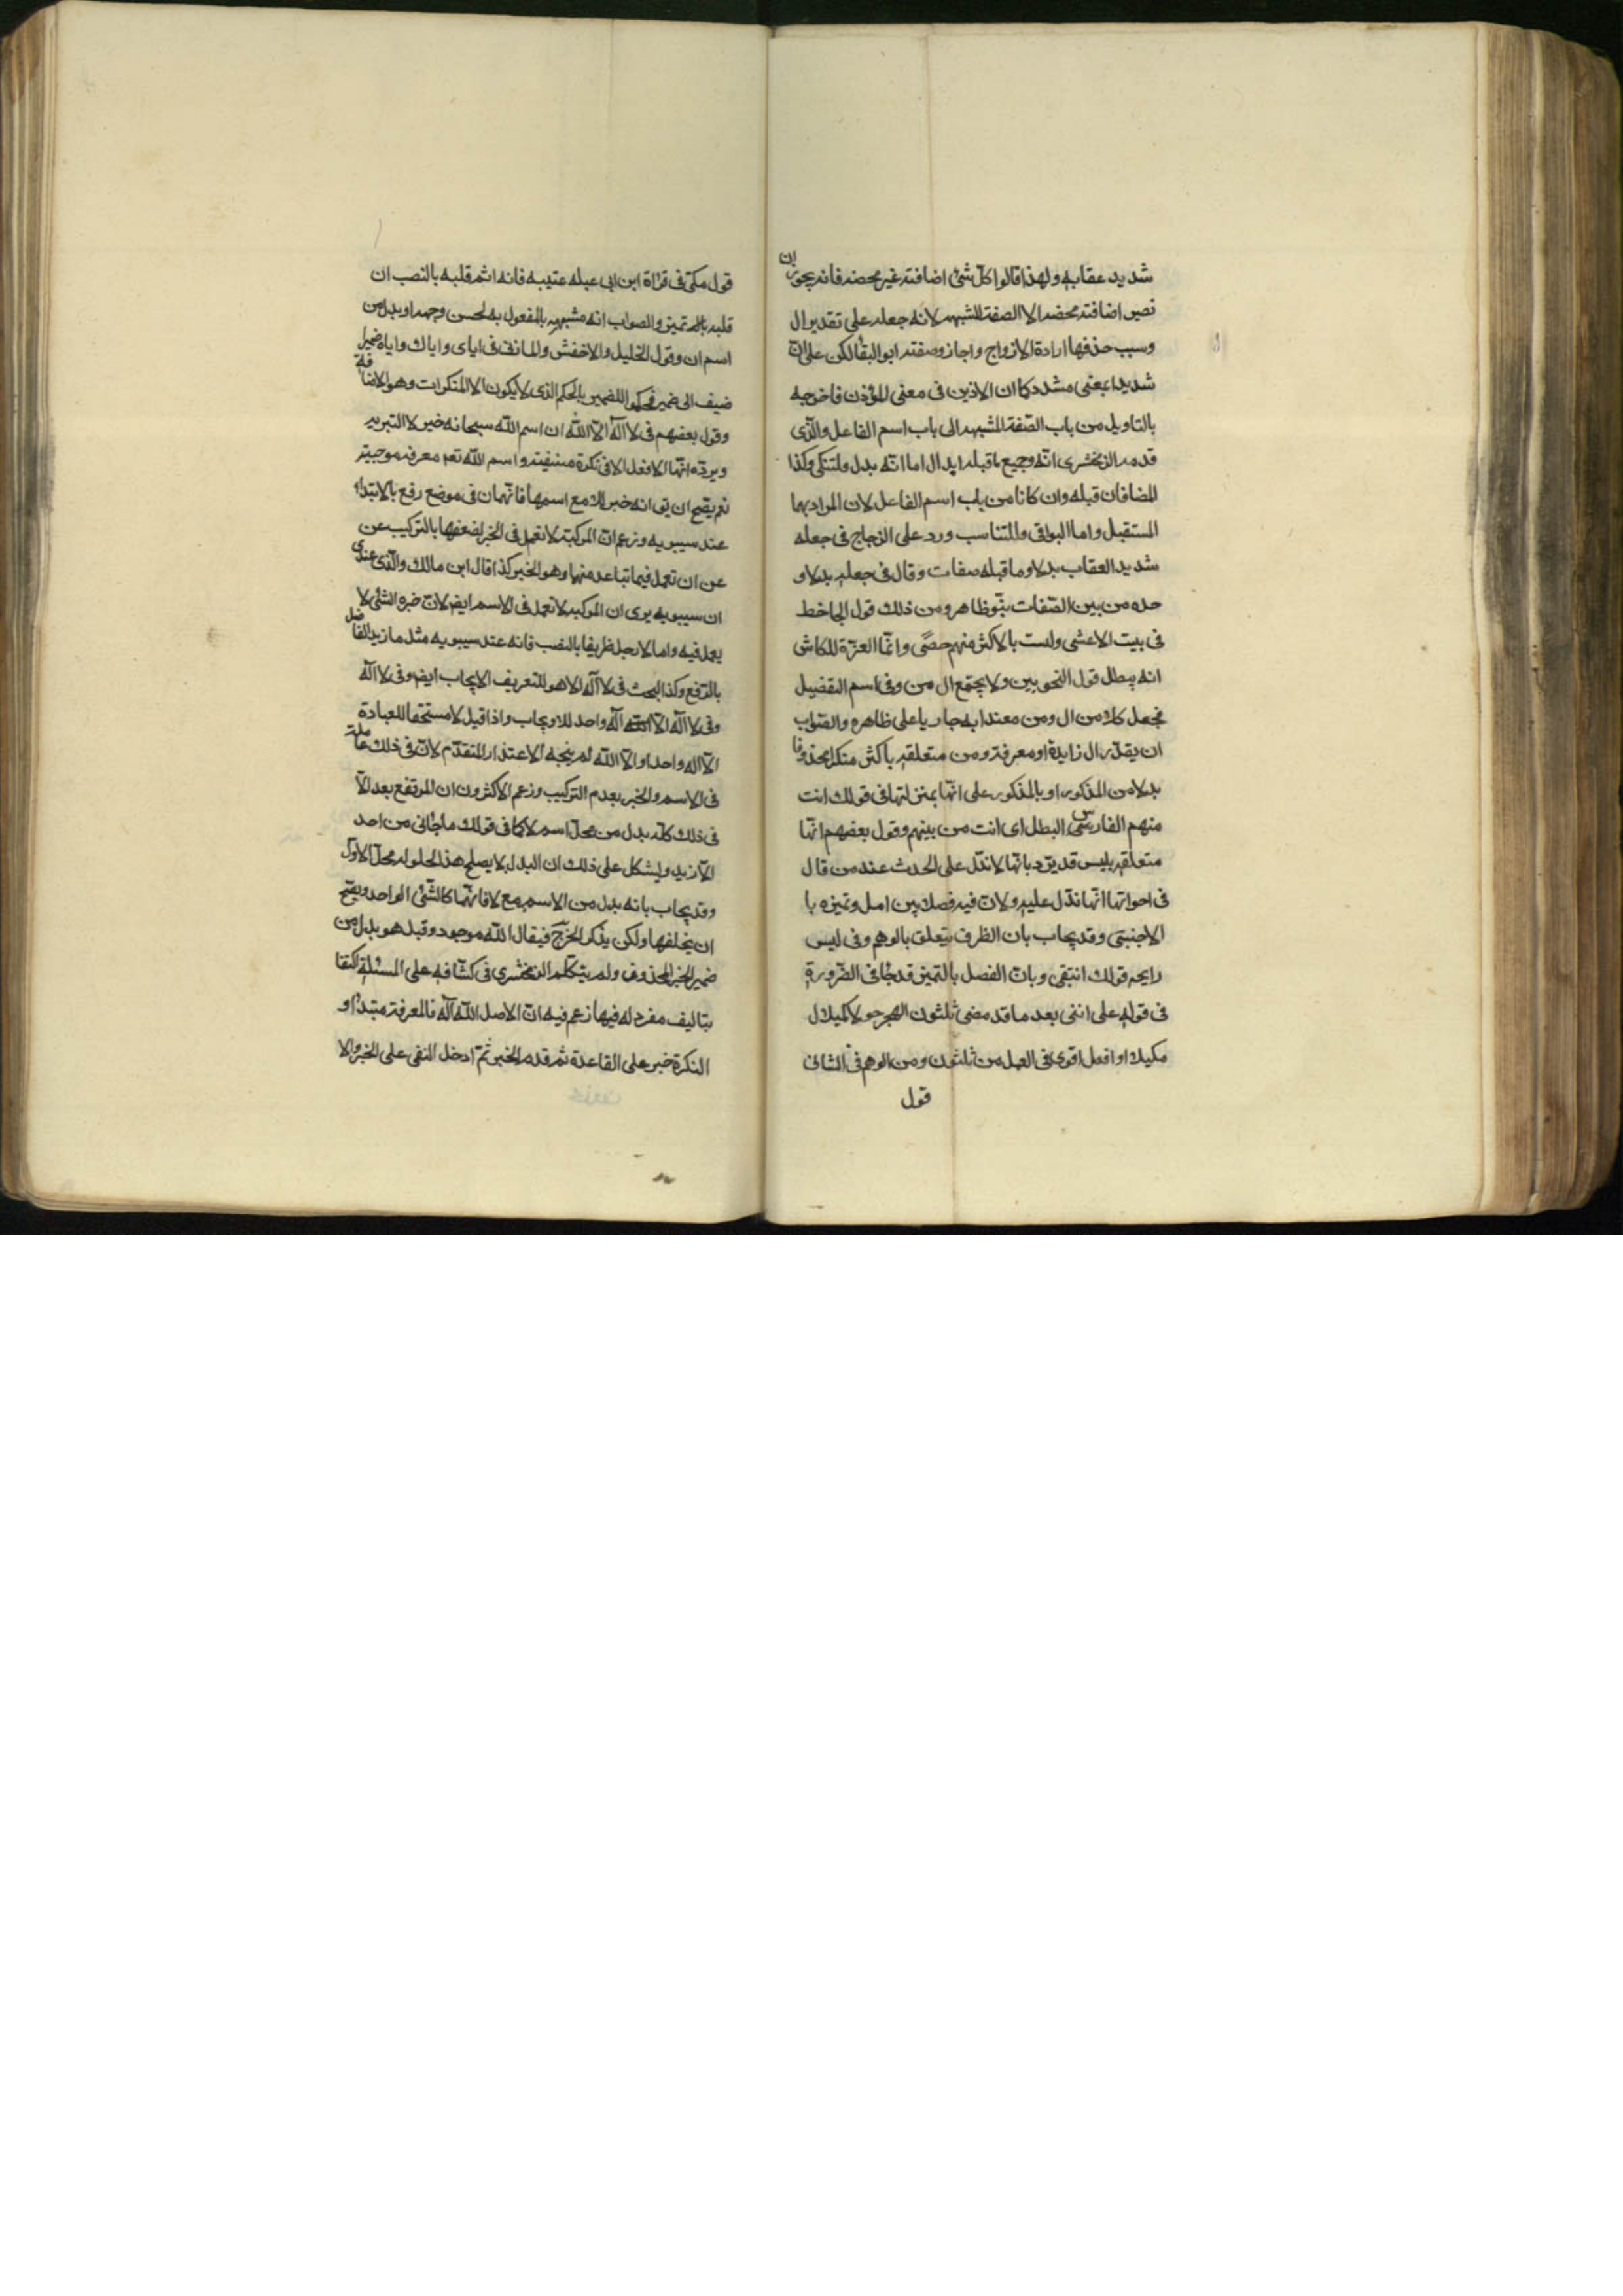 شديد عقابه ولهذا قالوا كل شئ اضافته غير محضه فانه يجوز ان
تصير اضافته محضه الا الصفة المشبهه لانه جعله على تقدير ال
وسبب حذفها ارادة الازواج واجاز وصفته ابو البقا لكن على ان
شديدا بمعنى مشدد كما ان الاذين فى معنى المؤذن فاخرجه
بالتاويل من باب الصفة المشبهه الى باب اسم الفاعل والذى
قدمه الزمخشرى انه وجميع ماقبله ابدال اما انه بدل فلتنكى وكذا
المضافان قبله وان كانا من باب اسم الفاعل لان المراد بهما
المستقبل واما البواقى فللتناسب ورد على الزجاج فى جعله
شديد العقاب بدلا وما قبله صفات وقال فى جعله بدلا و
حده من بين الصفات نبو ظاهر ومن ذلك قول الجاحظ
فى بيت الاعشى ولست بالاكثر منهم حصى وانما العزة للكاثر
انه يبطل قول النحويين ولا يجتمع ال من وفى اسم التفضيل
فجعل كلا من ال ومن معتدا به جاريا على ظاهره والصواب
ان يقدر ال زايدة او معرفة ومن متعلقه باكثر منكرا محذوفا
بدلا من المذكور او بالمذكور على انها بمنزلتها فى قولك انت
منهم الفارس البطل اى انت من بينهم وقول بعضهم انها
متعلقه بليس قد يرد بانها لا تدل على الحدث عند من قال
فى اخواتها انها تدل عليه ولان فيه فصلا بين افعل وتميزه با
الاجنبى وقد يجاب بان الظرف يتعلق بالوهم وفى ليس
رايحه قولك انتفى وبان الفصل بالتميز قد جا فى الضرورة
فى قوله على اننى بعد ما قد مضى ثلثون للهجر حولا كميلا ل
مكيلا وافعل اقوى فى العمل من ثلثون ومن الوهم فى الثانى
قول
قول مكى فى قراة ابن ابى عبله عتيبه فانه اثم قلبه بالنصب ان
قلبه تميز والصواب انه مشبهه بالمفعول به لحسن وجهه او بدل من
اسم ان وقول الخليل والاخفش والمازنى فى اياى واياك واياه ضمير
ضيف الى ضمير فحكموا للضمير بالحكم الذى لا يكون الا للنكرات وهو الاضافة
وقول بعضهم فى لا اله الا الله ان اسم الله سبحانه خبر لا التبريه
ويرده انها لا تعمل الا فى نكرة منفيته واسم الله تعم معرفه موجبته
نعم يصح ان يق انه خبر للا مع اسمها فانهما فى موضع رفع بالابتداء
عند سيبويه وزعم ان المركبة لا تعمل فى الخبر لضعفها بالتركيب عن
عن ان تعمل فيما تباعد منها وهو الخبر كذا قال ابن مالك والذى عندى
ان سيبويه يرى ان المركبه لا تعمل فى الاسم ايض لان جزء الشئ لا
يعمل فيه واما لا رجل ظريفا بالنصب فانه عند سيبويه مثل يا زيد الفاضل
بالرفع وكذا البحث فى لا اله الا هو للتعريف الايجاب ايض وفى لا اله
وفى لا اله الا اله واحد للايجاب واذا قيل لا مستحقا للعبادة
الا اله واحد او الا الله لم يتجه الاعتذار المتقدم لان فى ذلك عاملة
فى الاسم والخبر بعدم التركيب وزعم الاكثرون ان المرتفع بعد الا
فى ذلك كله بدل من محل اسم لا كما فى قولك ما جائنى من احد
الا زيد ويشكل على ذلك ان البدل لا يصلح هنا لحلوله محل الاول
وقد يجاب بانه بدل من الاسم مع لا فانهما كالشئ الواحد ويصح
ان يخلفها ولكن يذكر الخبر فيقال الله موجود وقيل هو بدل من
ضمير الخبر المحذوف ولم يتكلم الزمخشرى فى كشافه على المسئلة اكتفا
بتاليف مفرد له فيها زعم فيه ان الاصل الله اله فالمعرفة مبتدا و
النكرة خبر على القاعدة ثم قدم الخبر ثم ادخل النفى على الخبر والا